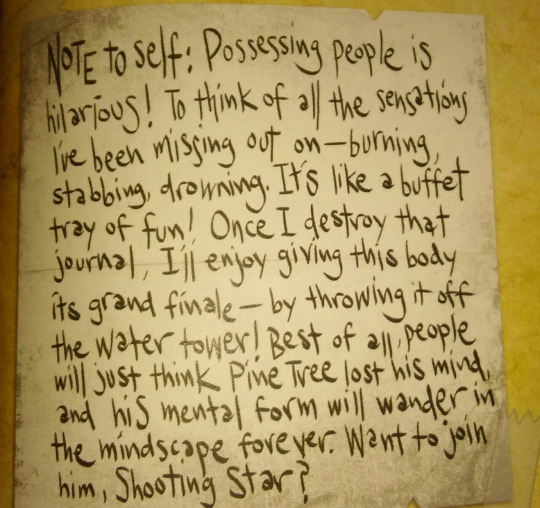 NOTE to self: Possessing people is
hilarious! To think of all the sensations
I've been missing out on—burning,
stabbing, drowning. It's like a buffet
tray of fun! Once I destroy that
journal, I'll enjoy giving this body
its grand finale—by throwing it off
the water tower! Best of all, people
will just think Pine Tree lost his mind,
and his mental form will wander in
the mindscape forever. Want to join
him, Shooting Star?